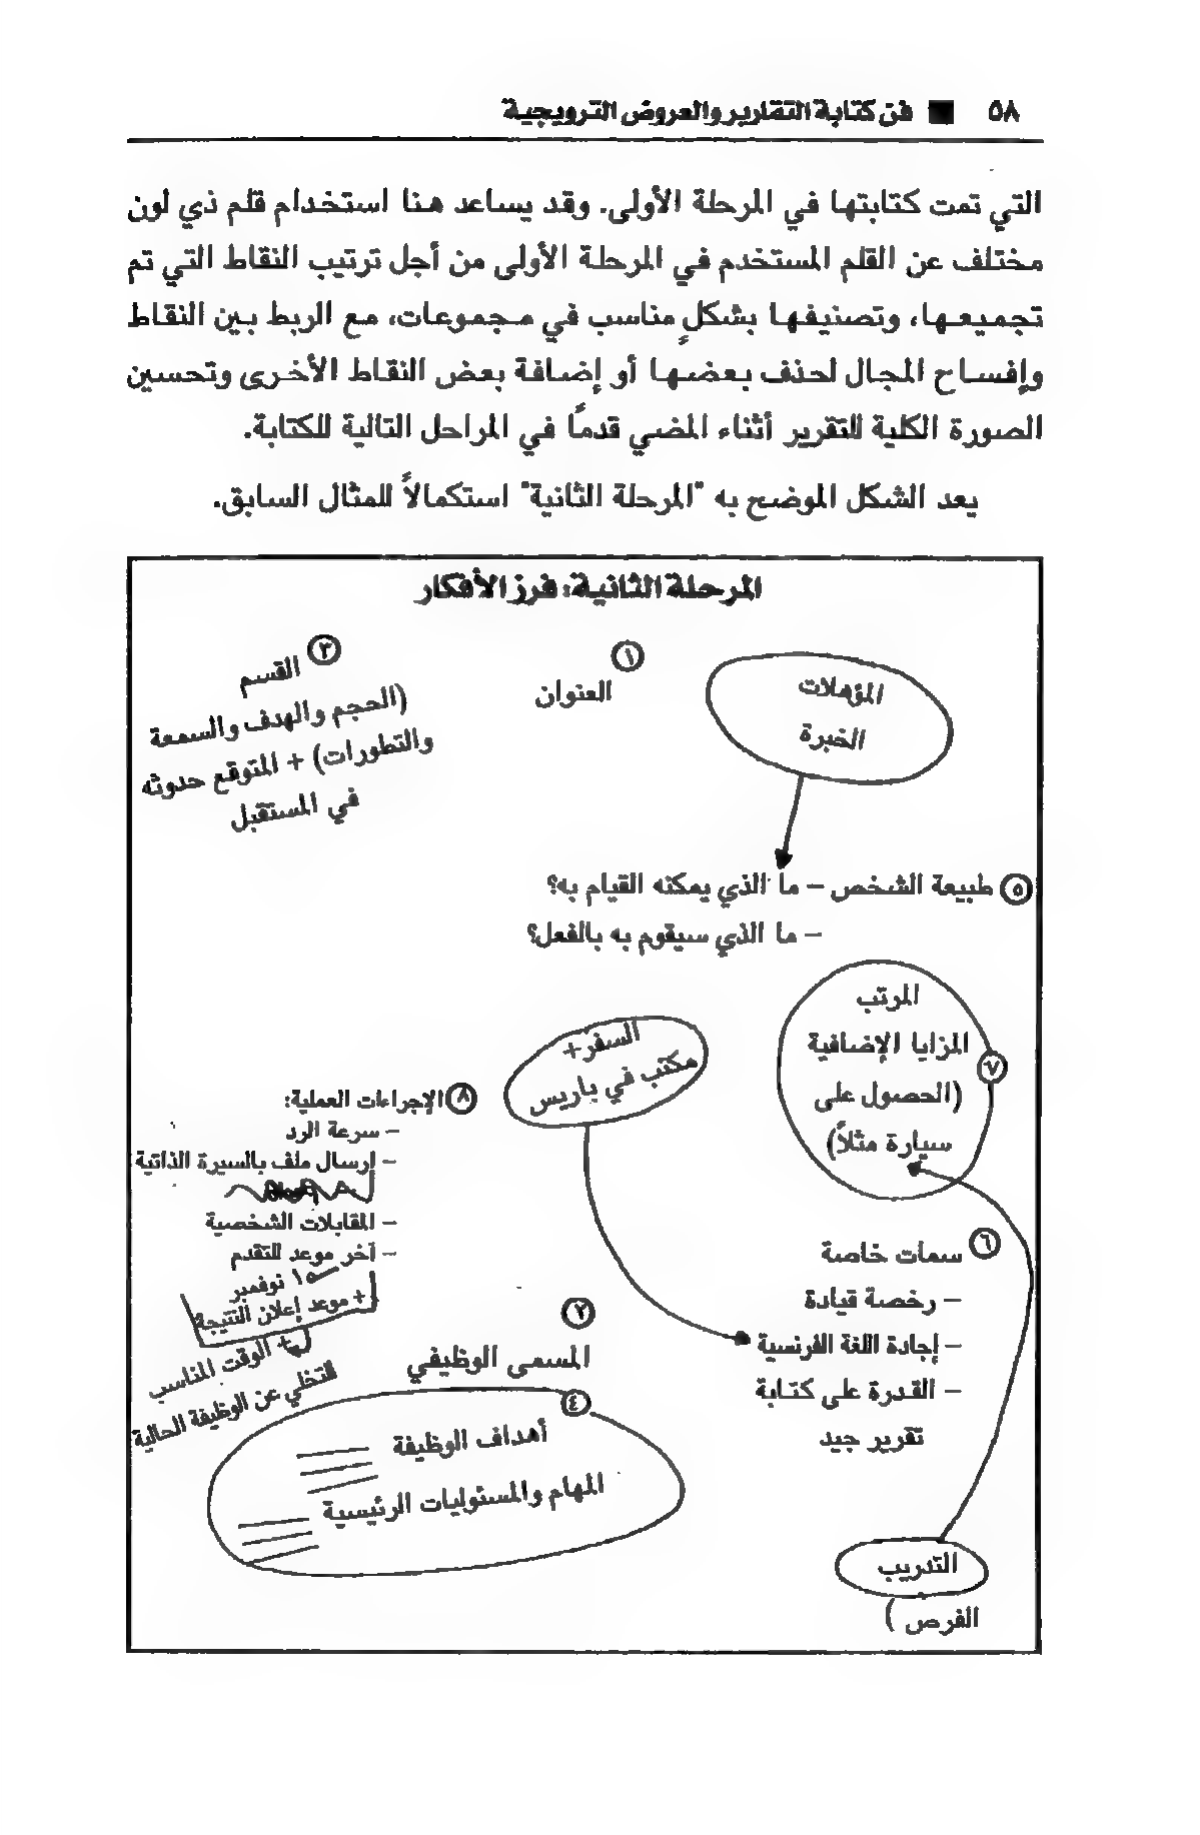 ٥٨ ■ فن كتابة التقارير والعروض الترويجية
التي تمت كتابتها في المرحلة الأولى. وقد يساعد هنا استخدام قلم ذي لون
مختلف عن القلم المستخدم في المرحلة الأولى من أجل ترتيب النقاط التي تم
تجميعها، وتصنيفها بشكلٍ مناسب في مجموعات، مع الربط بين النقاط
وإفساح المجال لحذف بعضها أو إضافة بعض النقاط الأخرى وتحسين
الصورة الكلية للتقرير أثناء المضي قدمًا في المراحل التالية للكتابة.
يعد الشكل الموضح به "المرحلة الثانية" استكمالاً للمثال السابق.
المرحلة الثانية: فرز الأفكار
المؤهلات
الخبرة
١
العنوان
٣
القسم
(الحجم والهدف والسمعة
والتطورات) + المتوقع حدوثه
في المستقبل
٥ طبيعة الشخص – ما الذي يمكنه القيام به؟
– ما الذي سيقوم به بالفعل؟
المرتب
المزايا الإضافية
٧
(الحصول على
سيارة مثلاً)
السفر+
مكتب في باريس
٨ الإجراءات العملية:
– سرعة الرد
– إرسال ملف بالسيرة الذاتية
– المقابلات الشخصية
– آخر موعد للتقدم
١٥ نوفمبر
+ موعد إعلان النتيجة
+ الوقت المناسب
للتخلي عن الوظيفة الحالية
٦ سمات خاصة
– رخصة قيادة
– إجادة اللغة الفرنسية
– القدرة على كتابة
تقرير جيد
٢
المسمى الوظيفي
٤
أهداف الوظيفة
المهام والمسئوليات الرئيسية
التدريب
الفرص )